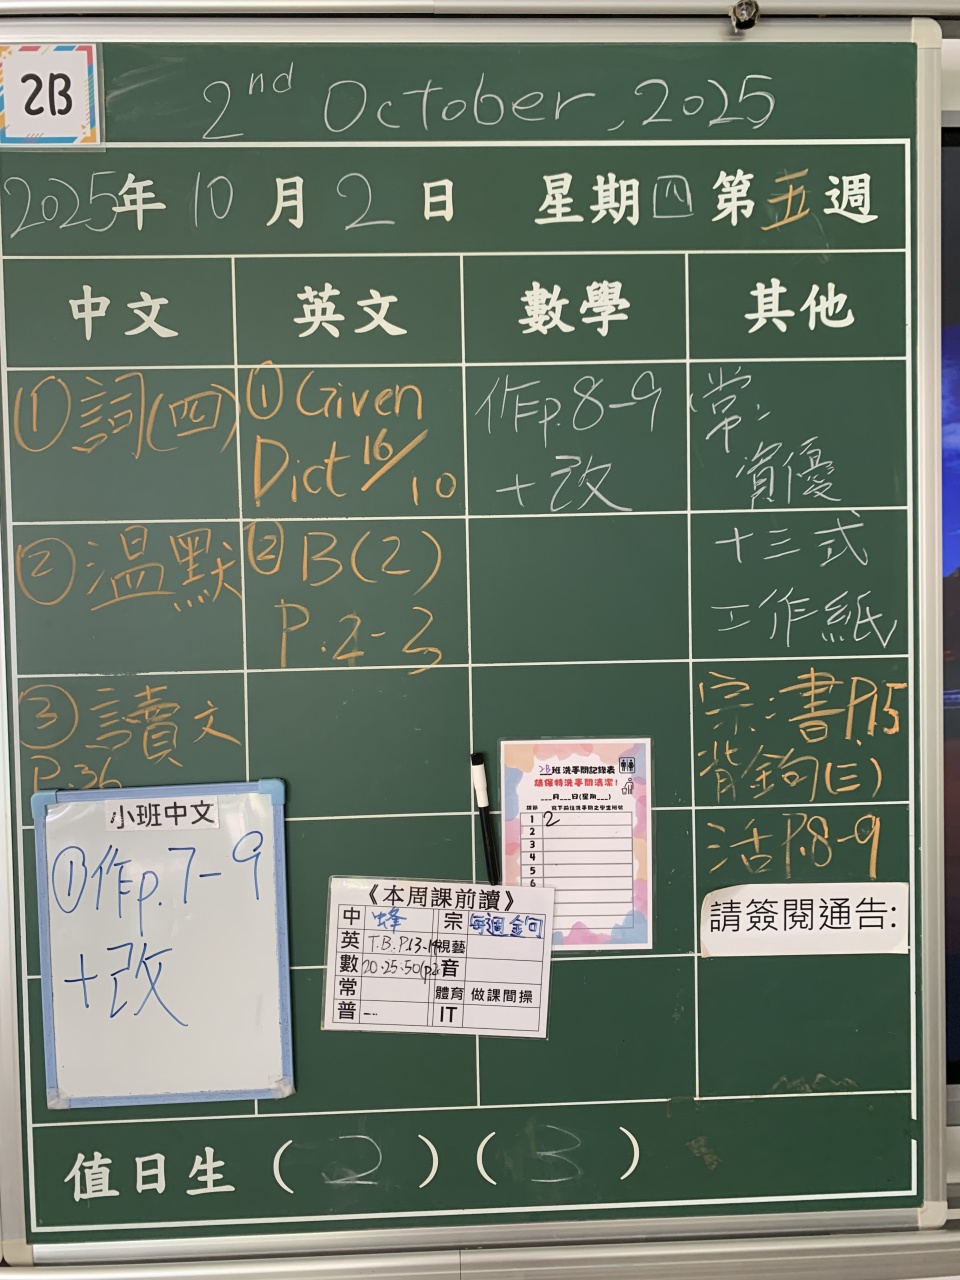 2B
2nd October, 2025
2025年 10 月 2 日 星期四 第五週
中文 英文 數學 其他
① 詞(四)
② 温默
③ 讀文
P.36
① Given
Dict 16/10
② B(2)
P.2-3
作p.8-9
+改
常:
資優
十三式
工作紙
宗:書P.15
背金句(三)
活P.8-9
請簽閱通告:
小班中文
①作p.7-9
+改
2B班洗手間記錄表
請保持洗手間清潔!
___月___日(星期___)
1 2
2
3
4
5
6
《本周課前讀》
中 蜂 宗 每週金句
英 T.B. P.13-1 視藝
數 20·25·50(p.2 音
常 體育 做課間操
普 IT
值日生 ( 2 ) ( 3 )